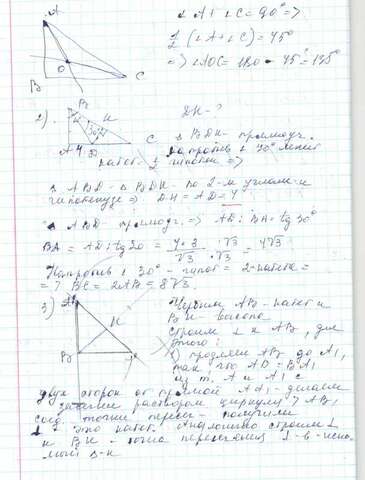 A
B
O
C
∠A + ∠C = 90° =>
½ (∠A + ∠C) = 45°
=> ∠AOC = 180 - 45° = 135°
2).
B
H
A 4
C
DH - ?
△ BDH - прямоуг.
напротив ∠ 30° лежит
катет ½ гипотен =>
△ ABD = △ BDH - по 2-м углам и
гипотенузе => DH = AD = 4
△ ABD - прямоуг. => AD : BA = tg 30°
BA = AD : tg 30 = 4·3 / √3 · √3 / √3 = 4√3
Напротив ∠ 30° - гипот = 2 катета =
=> BC = 2AB = 8√3.
3)
B
H
Чертим AB - катет и
BH - высота
строим ⊥ к AB, для
этого:
1) продляем AB до A₁,
так, что AB = BA₁
из т. A и A₁ с
двух сторон от прямой AA₁ - делаем
засечки раствором циркуля > AB,
соед. точки перес - получили
⊥ - это катет. Аналогично строим ⊥
к BH - точка пересечения